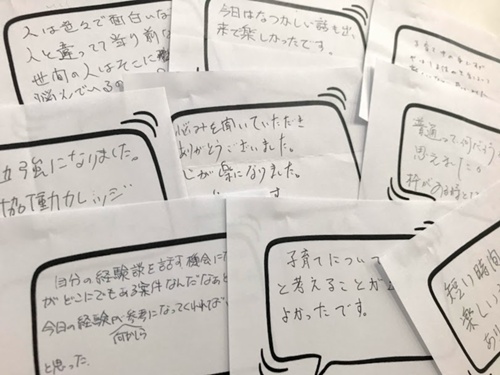 人は色々で面白いな
人と違ってて当り前な
世間の人はそこに
悩んでいるの
今日はなつかしい話も出
来て楽しかったです。
強になりました。
協働カレッジ
悩みを聞いていただき
ありがとうございました。
心が楽になりました。
普通って何だろう
思えました
枠がある様と
自分の経験談を話す機会にな
がどこにでもある案件なんだなあと
今日の経験が参考になってくれれば
何かしら
と思った
子育てについて
と考えることが
よかったです。
短い時間
楽しい
あ